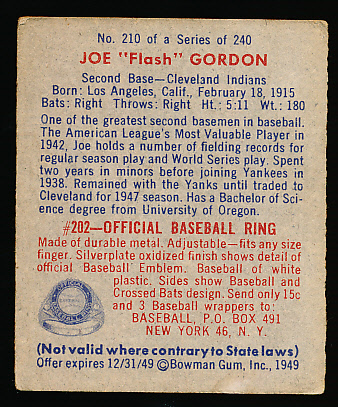 No. 210 of a Series of 240
JOE "Flash" GORDON
Second Base—Cleveland Indians
Born: Los Angeles, Calif., February 18, 1915
Bats: Right Throws: Right Ht.: 5:11 Wt.: 180
One of the greatest second basemen in baseball.
The American League's Most Valuable Player in
1942, Joe holds a number of fielding records for
regular season play and World Series play. Spent
two years in minors before joining Yankees in
1938. Remained with the Yanks until traded to
Cleveland for 1947 season. Has a Bachelor of Sci-
ence degree from University of Oregon.
#202—OFFICIAL BASEBALL RING
Made of durable metal. Adjustable—fits any size
finger. Silverplate oxidized finish shows detail of
official Baseball Emblem. Baseball of white
plastic. Sides show Baseball and
Crossed Bats design. Send only 15c
and 3 Baseball wrappers to:
BASEBALL, P.O. BOX 491
NEW YORK 46, N. Y.
OFFICIAL
BASEBALL RING
(Not valid where contrary to State laws)
Offer expires 12/31/49 ©Bowman Gum, Inc., 1949